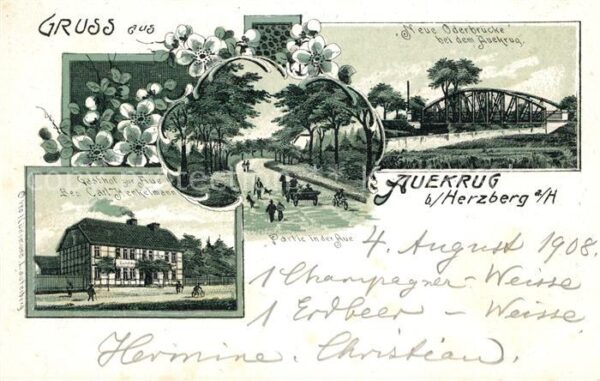 Gruss aus
"Neue Oderbrücke"
bei dem Auekrug.
Gasthof zur Aue
Bes. Carl Henkelmann
Partie in der Aue
Auekrug
b/Herzberg a/H
4. August 1908.
1 Champagner - Weisse
1 Erdbeer - Weisse
Hermine. Christian.